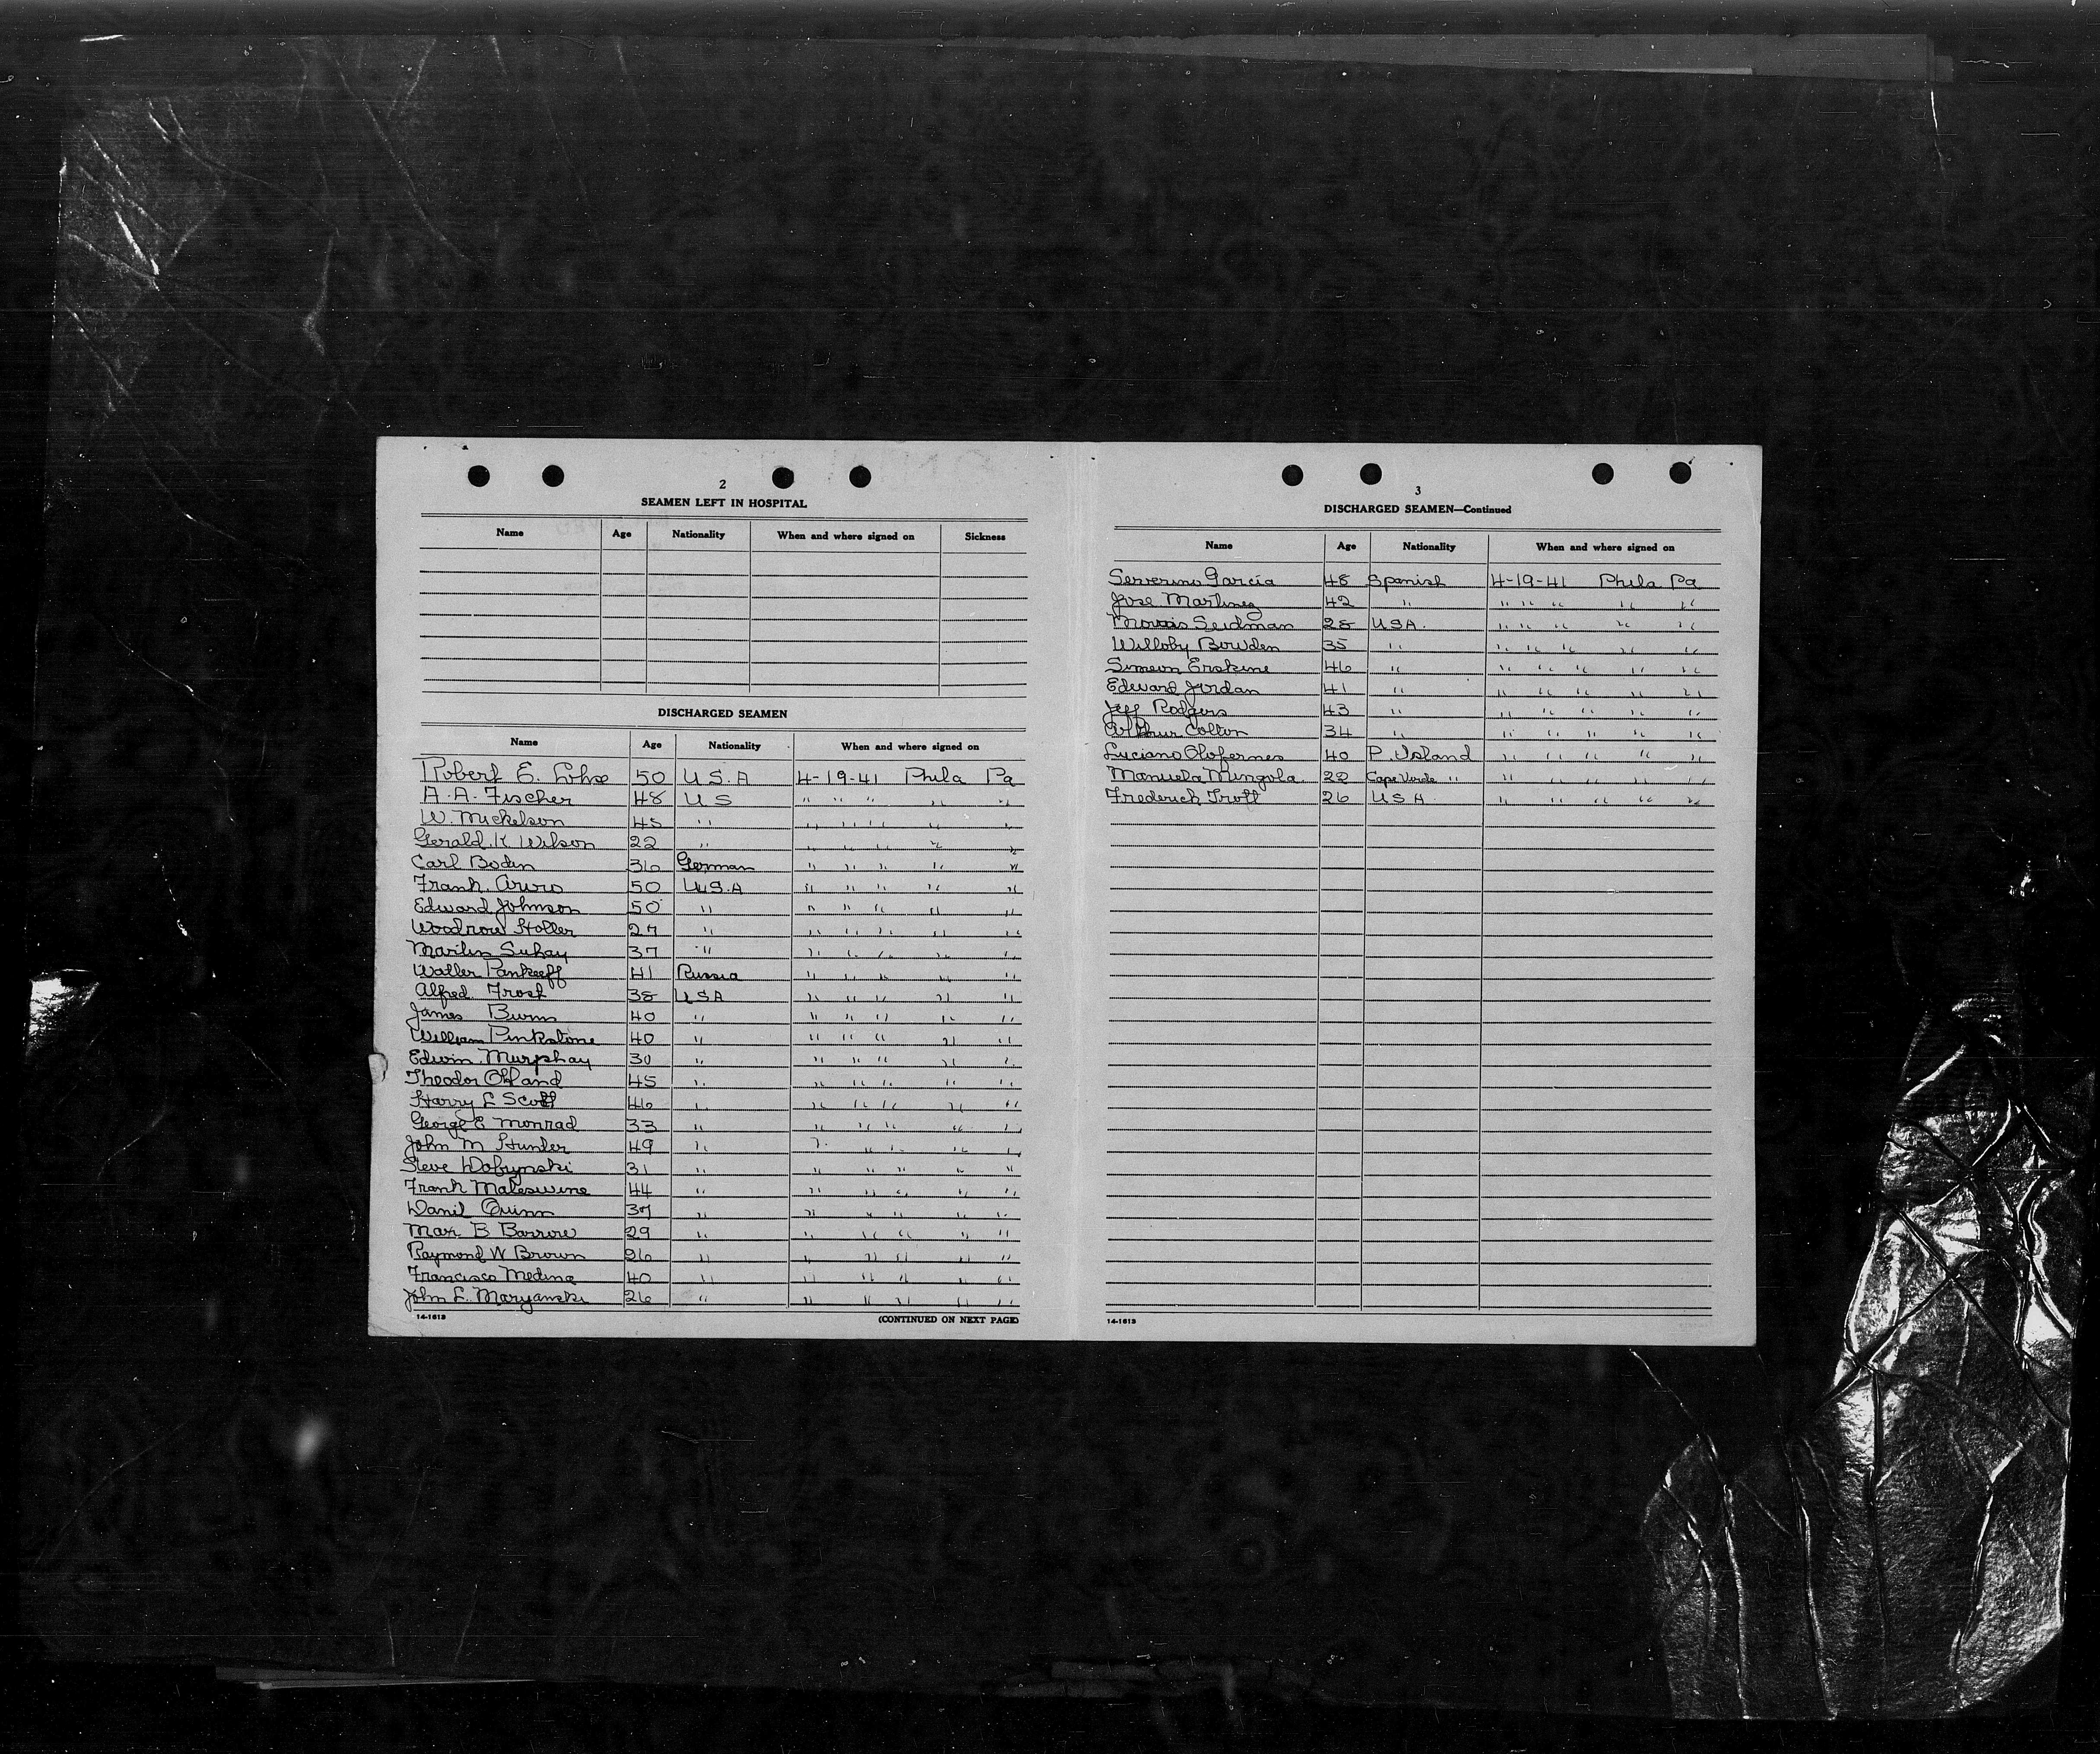 2
SEAMEN LEFT IN HOSPITAL
Name Age Nationality When and where signed on Sickness
DISCHARGED SEAMEN
Name Age Nationality When and where signed on
Robert E. Lohse 50 U.S.A 4-19-41 Phila Pa
A.A. Fischer 48 U S " " " " "
W. Mickelson 45 " " " " " "
Gerald K Wilson 22 " " " " " "
Carl Boden 36 German " " " " "
Frank 50 U.S.A " " " " "
Edward Johnson 50 " " " " " "
Woodrow Holler 27 " " " " " "
Martin Suhay 37 " " " " " "
Walter Pankeeff 41 Russia " " " " "
Alfred Frost 38 USA " " " " "
James Burns 40 " " " " " "
William Pinkstone 40 " " " " " "
Edwin Murphay 30 " " " " " "
Theodor Ohland 45 " " " " " "
Harry L Scott 46 " " " " " "
George E Monrad 33 " " " " " "
John M Hunter 49 " " " " " "
Steve Dobrynski 31 " " " " " "
Frank Maleswine 44 " " " " " "
Danil Quinn 37 " " " " " "
Max B Barrow 29 " " " " " "
Raymond W Brown 26 " " " " " "
Francisco Medina 40 " " " " " "
John L. Maryanski 26 " " " " " "
14-1613 (CONTINUED ON NEXT PAGE)
3
DISCHARGED SEAMEN—Continued
Name Age Nationality When and where signed on
Serverino Garcia 48 Spanish 4-19-41 Phila Pa
Jose Martinez 42 " " " " " "
Morris Seidman 28 USA. " " " " "
Willoby Bowden 35 " " " " " "
Simeon Erskine 46 " " " " " "
Edward Jordan 41 " " " " " "
Jeff Rodgers 43 " " " " " "
Arthur Colton 34 " " " " " "
Luciano Olofernes 40 P. Island " " " " "
Manuela Mingola 22 Cape Verde " " " " " "
Frederick Troll 26 USA " " " " "
14-1613